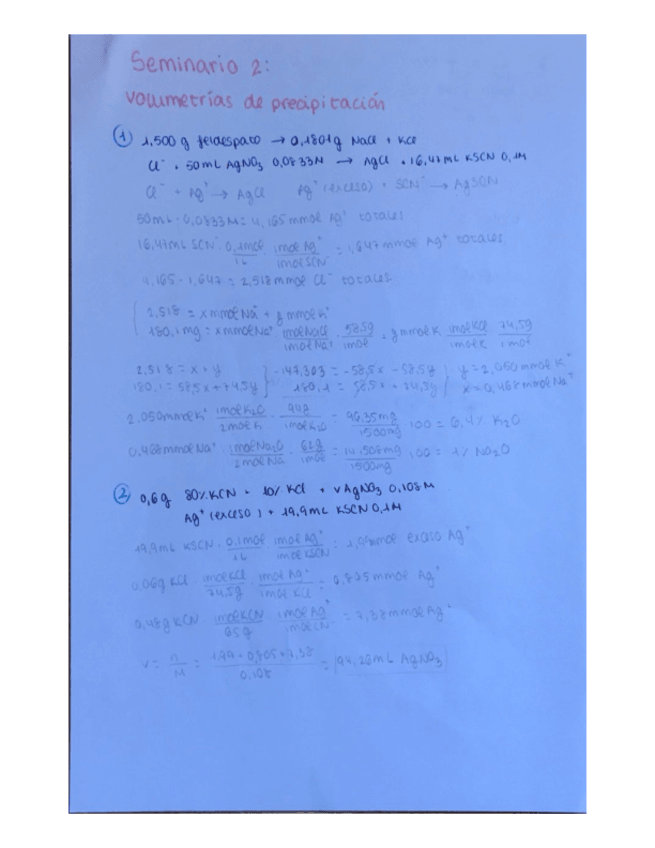 Seminario 2:
Volumetrías de precipitación
① 1,500 g feldespato → 0,1801g NaCl + KCl
Cl⁻ + 50mL AgNO₃ 0,0833N → AgCl + 16,47mL KSCN 0,1M
Cl⁻ + Ag⁺ → AgCl Ag⁺(exceso) + SCN⁻ → AgSCN
50mL · 0,0833M = 4,165mmol Ag⁺ totales
16,47mL SCN⁻ · 0,1mol/1L · 1mol Ag⁺/1mol SCN⁻ = 1,647mmol Ag⁺ totales
4,165 - 1,647 = 2,518mmol Cl⁻ totales
2,518 = x mmol Na⁺ + y mmol K⁺
180,1mg = x mmol Na⁺ · 1mol NaCl/1mol Na⁺ · 58,5g/1mol + y mmol K · 1mol KCl/1mol K · 74,5g/1mol
2,518 = x + y } -147,303 = -58,5x - 58,5y } y = 2,050mmol K⁺
180,1 = 58,5x + 74,5y } 180,1 = 58,5x + 74,5y } x = 0,468mmol Na⁺
2,050mmol K⁺ · 1mol K₂O/2mol K · 94g/1mol K₂O = 96,35mg/1500mg · 100 = 6,4% K₂O
0,468mmol Na⁺ · 1mol Na₂O/2mol Na · 62g/1mol = 14,508mg/1500mg · 100 = 1% Na₂O
② 0,6g 80% KCN + 10% KCl + V AgNO₃ 0,108M
Ag⁺(exceso) + 19,9mL KSCN 0,1M
19,9mL KSCN · 0,1mol/1L · 1mol Ag⁺/1mol KSCN = 1,99mmol exceso Ag⁺
0,06g KCl · 1mol KCl/74,5g · 1mol Ag⁺/1mol KCl = 0,805mmol Ag⁺
0,48g KCN · 1mol KCN/65g · 1mol Ag⁺/1mol CN⁻ = 7,38mmol Ag⁺
V = n/M = 1,99 + 0,805 + 7,38/0,108 = 94,26mL AgNO₃